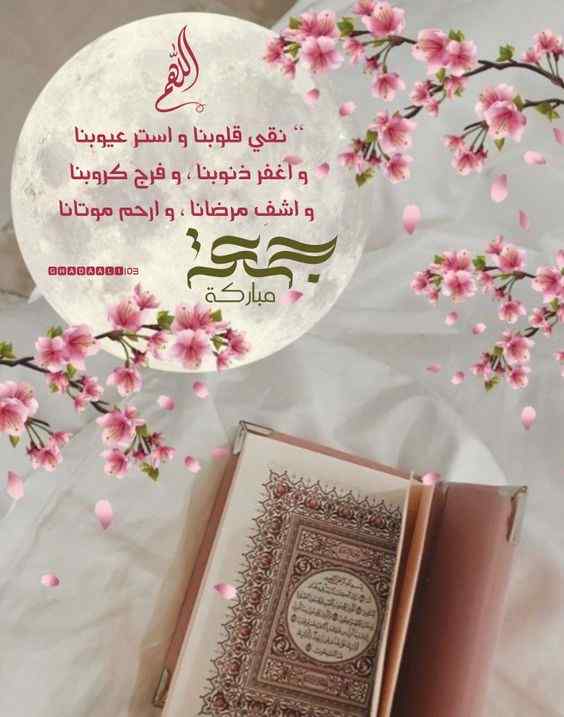 اللهم
“ نقي قلوبنا و استر عيوبنا
و اغفر ذنوبنا ، و فرج كروبنا
و اشفِ مرضانا ، و ارحم موتانا
جمعة
مباركة
GHADAALI103